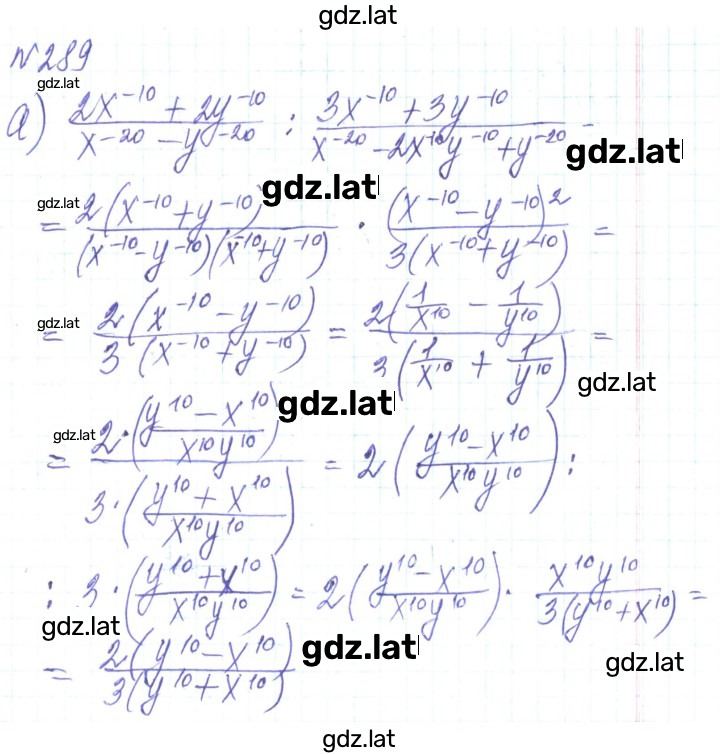 gdz.lat
№289
gdz.lat
а) (2x^-10 + 2y^-10)/(x^-20 - y^-20) : (3x^-10 + 3y^-10)/(x^-20 - 2x^10y^-10 + y^-20) =
gdz.lat
gdz.lat gdz.lat
= 2(x^-10 + y^-10)/((x^-10 - y^-10)(x^-10 + y^-10)) · (x^-10 - y^-10)^2/(3(x^-10 + y^-10)) =
gdz.lat
= 2(x^-10 - y^-10)/(3(x^-10 + y^-10)) = 2(1/x^10 - 1/y^10)/(3(1/x^10 + 1/y^10)) =
gdz.lat
gdz.lat
gdz.lat
= 2·((y^10 - x^10)/(x^10y^10))/(3·((y^10 + x^10)/(x^10y^10))) = 2((y^10 - x^10)/(x^10y^10)) :
: 3·((y^10 + x^10)/(x^10y^10)) = 2((y^10 - x^10)/(x^10y^10)) · x^10y^10/(3(y^10 + x^10)) =
gdz.lat
gdz.lat
gdz.lat
= 2(y^10 - x^10)/(3(y^10 + x^10))
gdz.lat